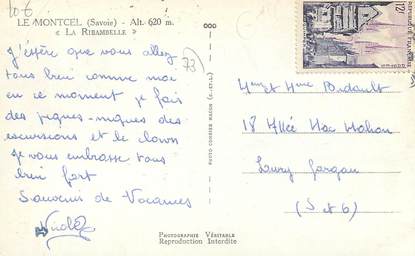 10 €
LE MONTCEL (Savoie) - Alt. 620 m.
« LA RIBAMBELLE »
73
J'éspère que vous allez
tous bien comme moi
en ce moment je fais
des piques-niques des
excursions et le clown
Je vous embrasse tous
bien fort
Souvenir de Vacances
PHOTO COMBIER MACON (S.-ET-L.)
12F
REPUBLIQUE FRANÇAISE
QUIMPER
Mr et Mme Bidault
18 Allée Mac Mahon
Livry Gargan
(S et O)
PHOTOGRAPHIE VÉRITABLE
Reproduction Interdite